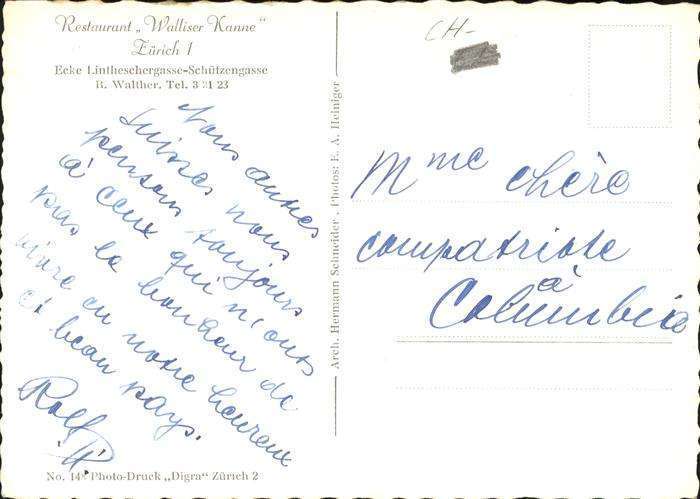 Restaurant „Walliser Kanne"
Zürich 1
Ecke Lintheschergasse-Schützengasse
B. Walther. Tel. 3 21 23
Nous autres
Suisses nous
pensons toujours
à ceux qui n'onts
pas le bonheur de
vivre en notre heureux
et beau pays.
Rolf
No. 14 Photo-Druck „Digra" Zürich 2
Arch. Hermann Schneider. Photos: E. A. Heiniger
CH-
Mme chère
compatriote
à
Columbia